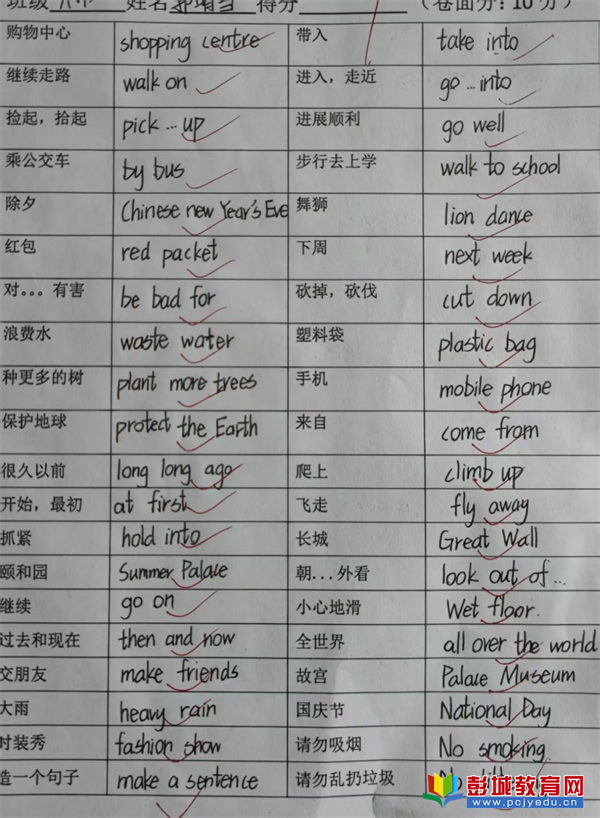 班级 姓名 得分 （卷面分：10分）
购物中心 shopping centre 带入 take into
继续走路 walk on 进入，走近 go ...into
捡起，拾起 pick ... up 进展顺利 go well
乘公交车 by bus 步行去上学 walk to school
除夕 Chinese new Year's Eve 舞狮 lion dance
红包 red packet 下周 next week
对。。。有害 be bad for 砍掉，砍伐 cut down
浪费水 waste water 塑料袋 plastic bag
种更多的树 plant more trees 手机 mobile phone
保护地球 protect the Earth 来自 come from
很久以前 long long ago 爬上 climb up
开始，最初 at first 飞走 fly away
抓紧 hold into 长城 Great Wall
颐和园 Summer Palace 朝...外看 look out of ...
继续 go on 小心地滑 Wet floor.
过去和现在 then and now 全世界 all over the world
交朋友 make friends 故宫 Palace Museum
大雨 heavy rain 国庆节 National Day
时装秀 fashion show 请勿吸烟 No smoking.
造一个句子 make a sentence 请勿乱扔垃圾 No
彭城教育网
www.pcjyedu.cn